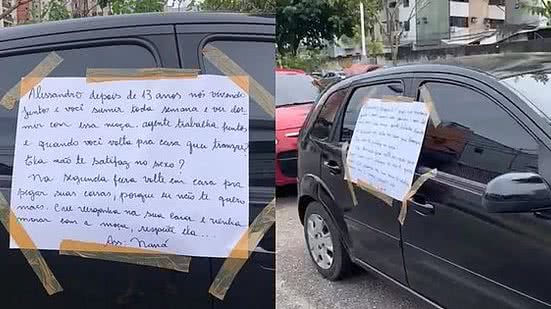 Alessandro depois de 13 anos nós vivendo
juntos e você sumir toda semana e vir dor
mir com essa moça. agente trabalha juntos
e quando você volta pra casa quer transar,
Ela não te satisfaz no sexo?
Na segunda feira volte em casa pra
pegar suas coisas, porque eu não te quero
mais. Crie vergonha na sua cara e venha
morar com a moça, respeite ela...
Ass. Naná